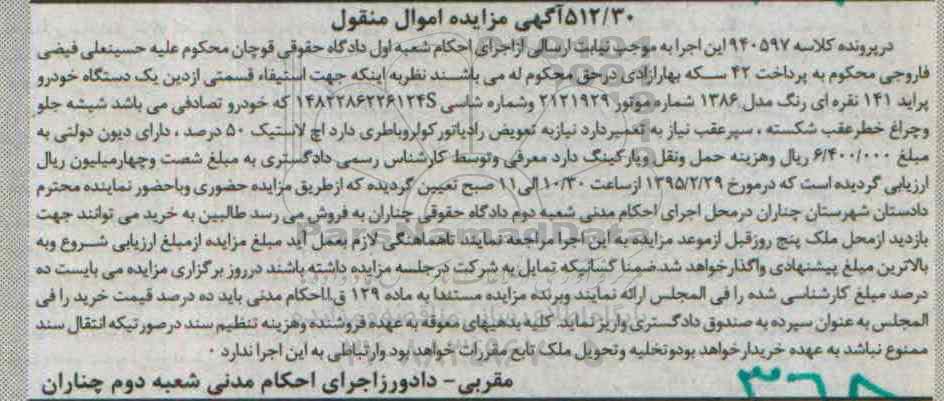 ۵۱۲/۳۰آگهی مزایده اموال منقول
درپرونده کلاسه ۹۴۰۵۹۷ این اجرا به موجب نیابت ارسالی ازاجرای احکام شعبه اول دادگاه حقوقی قوچان محکوم علیه حسینعلی فیضی
فاروجی محکوم به پرداخت ۴۲ سکه بهارازادی درحق محکوم له می باشند نظربه اینکه جهت استیفاء قسمتی ازدین یک دستگاه خودرو
پراید ۱۴۱ نقره ای رنگ مدل ۱۳۸۶ شماره موتور ۲۱۲۱۹۲۹ وشماره شاسی ۱۴۸۲۲۸۶۲۲۶۱۲۴S که خودرو تصادفی می باشد شیشه جلو
وچراغ خطرعقب شکسته ، سپرعقب نیاز به تعمیردارد نیازبه تعویض رادیاتورکولروباطری دارد اچ لاستیک ۵۰ درصد ، دارای دیون دولتی به
مبلغ ۶/۴۰۰/۰۰۰ ریال وهزینه حمل ونقل وپارکینگ دارد معرفی وتوسط کارشناس رسمی دادگستری به مبلغ شصت وچهارمیلیون ریال
ارزیابی گردیده است که درمورخ ۱۳۹۵/۲/۲۹ ازساعت ۱۰/۳۰ الی۱۱ صبح تعیین گردیده که ازطریق مزایده حضوری وباحضور نماینده محترم
دادستان شهرستان چناران درمحل اجرای احکام مدنی شعبه دوم دادگاه حقوقی چناران به فروش می رسد طالبین به خرید می توانند جهت
بازدید ازمحل ملک پنج روزقبل ازموعد مزایده به این اجرا مراجعه نمایند تاهماهنگی لازم بعمل آید مبلغ مزایده ازمبلغ ارزیابی شروع وبه
بالاترین مبلغ پیشنهادی واگذارخواهد شد.ضمنا کسانیکه تمایل به شرکت درجلسه مزایده داشته باشند درروز برگزاری مزایده می بایست ده
درصد مبلغ کارشناسی شده را فی المجلس ارائه نمایند وبرنده مزایده مستندا به ماده ۱۲۹ ق.ا.احکام مدنی باید ده درصد قیمت خرید را فی
المجلس به عنوان سپرده به صندوق دادگستری واریز نماید. کلیه بدهیهای معوقه به عهده فروشنده وهزینه تنظیم سند درصورتیکه انتقال سند
ممنوع نباشد به عهده خریدارخواهد بودوتخلیه وتحویل ملک تابع مقررات خواهد بود وارتباطی به این اجرا ندارد .
مقربی- دادورزاجرای احکام مدنی شعبه دوم چناران
ParsNamadData